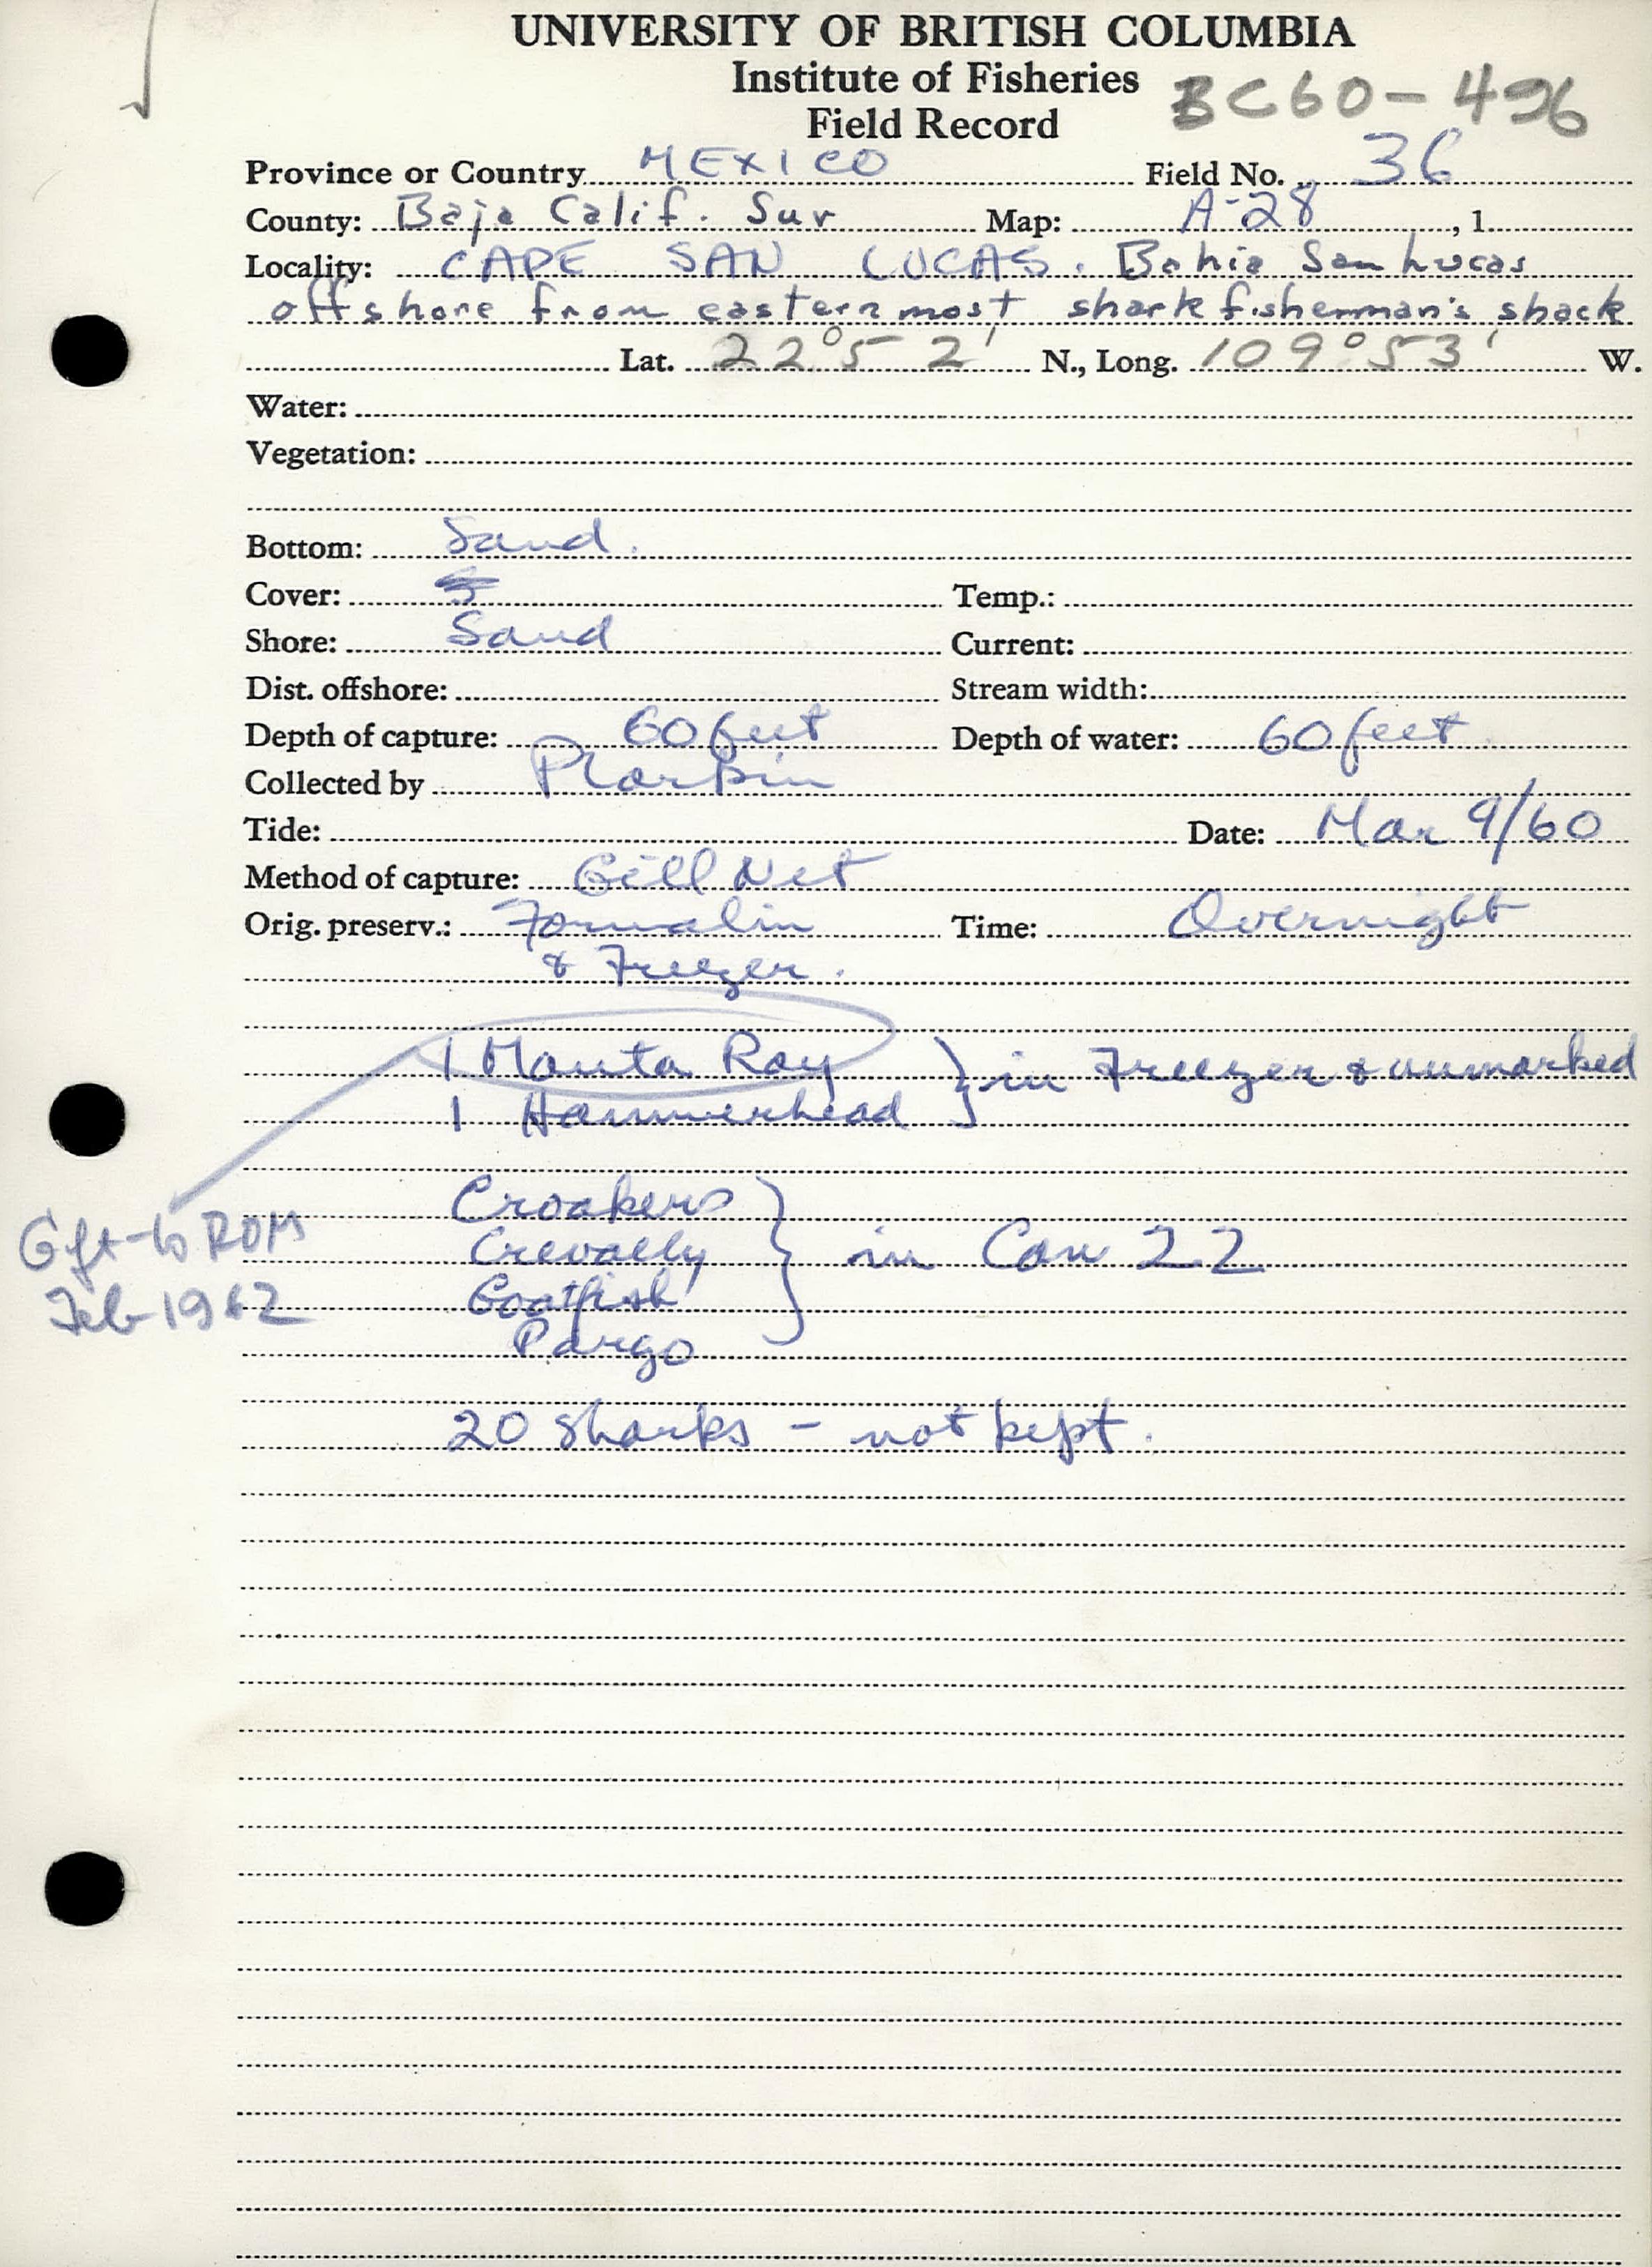 UNIVERSITY OF BRITISH COLUMBIA
Institute of Fisheries
Field Record
BC60-496
Province or Country MEXICO Field No. 36
County: Baja Calif. Sur Map: A-28, 1
Locality: CAPE SAN LUCAS. Bahia San Lucas
offshore from easternmost shark fisherman's shack
Lat. 22°52' N., Long. 109°53' W.
Water:
Vegetation:
Bottom: Sand.
Cover: Temp.:
Shore: Sand Current:
Dist. offshore: Stream width:
Depth of capture: 60 feet Depth of water: 60 feet
Collected by P Larkin
Tide: Date: Mar 9/60
Method of capture: Gill Net
Orig. preserv.: Formalin Time: Overnight
& Freezer.
1 Manta Ray } in Freezer & unmarked
1 Hammerhead
Croakers
Crevally } in Can 22
Goatfish
Pargo
Gift to ROM
Feb 1962
20 sharks - not kept.